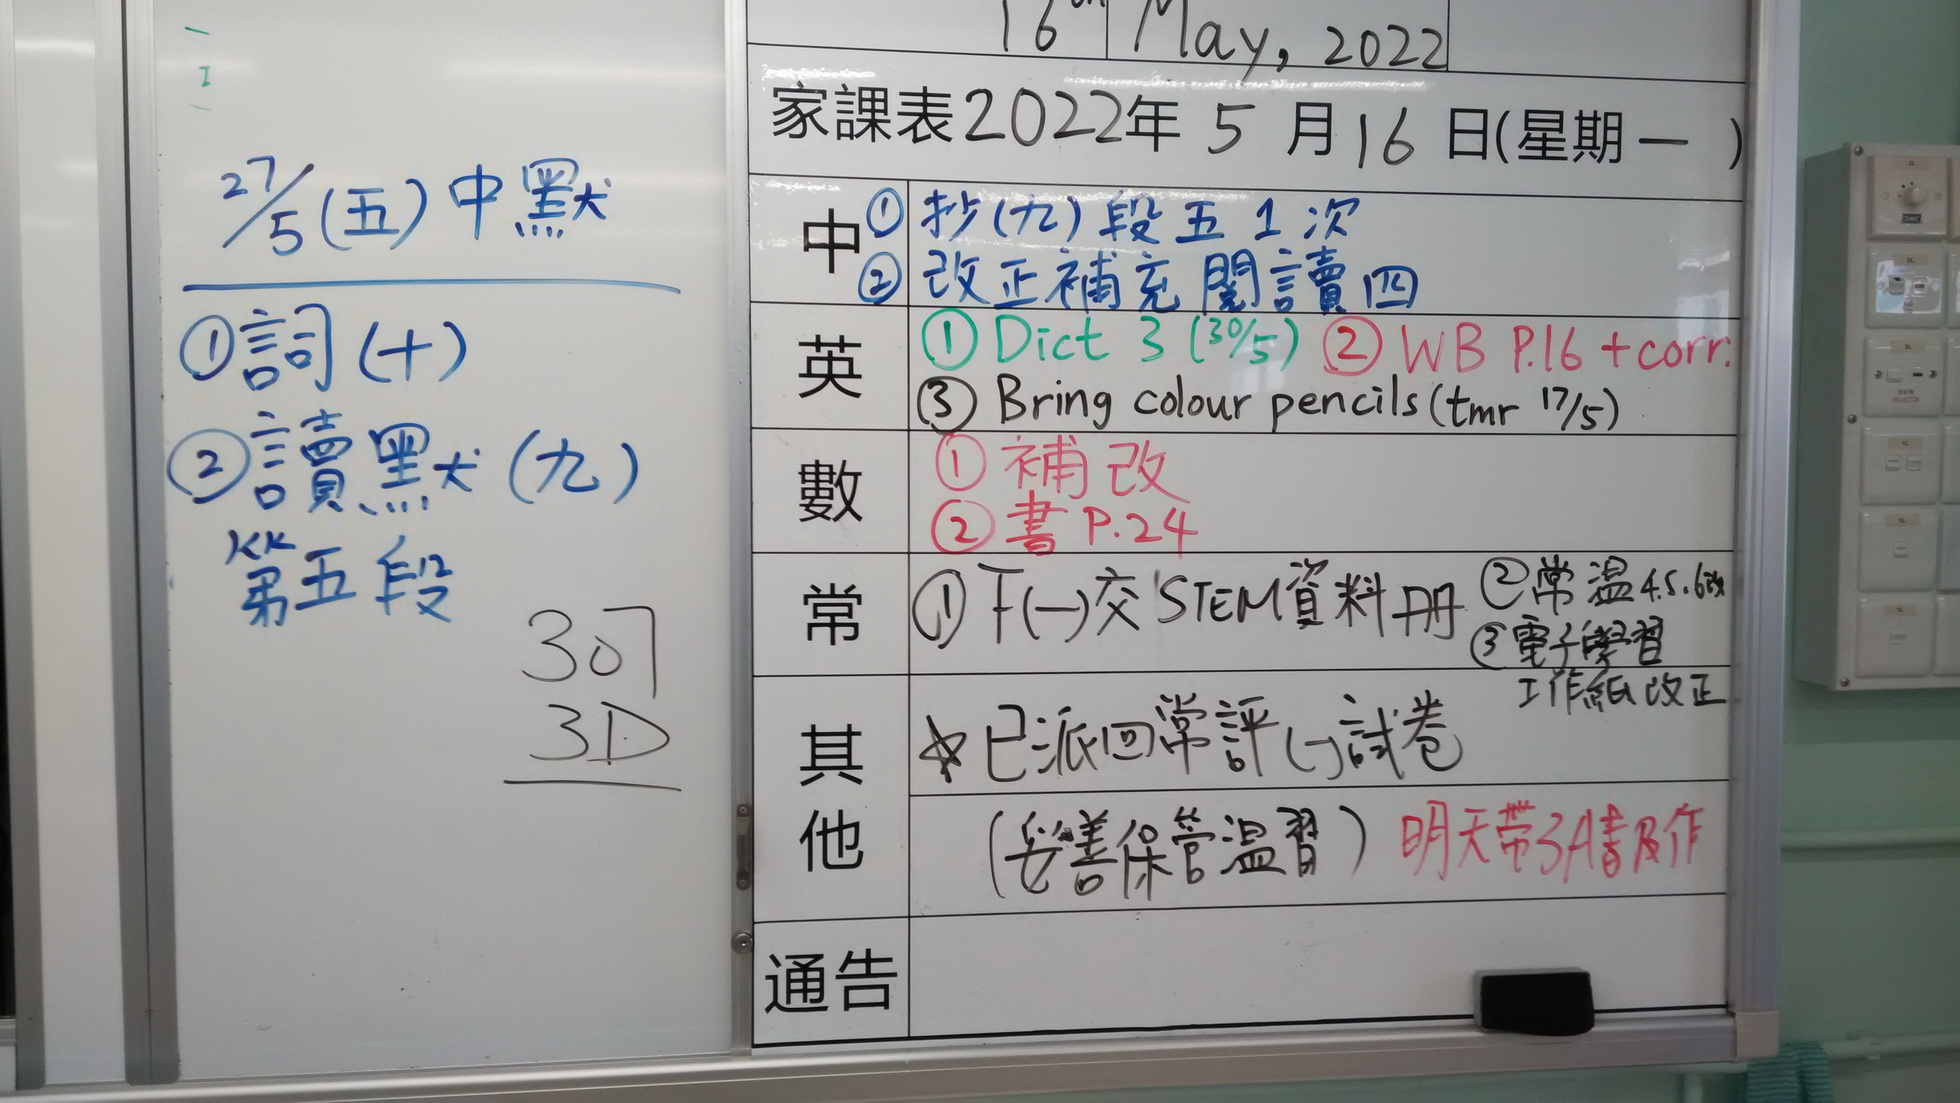 27/5(五)中默
①詞(十)
②讀默(九)
第五段
307
3D
16th May, 2022
家課表2022年5月16日(星期一)
中 ①抄(九)段五1次
②改正補充閱讀四
英 ①Dict 3 (30/5) ②WB P.16 + corr.
③Bring colour pencils (tmr 17/5)
數 ①補改
②書 P.24
常 ①下(一)交STEM資料冊 ②常溫4.5.6改
③電子學習
工作紙改正
其他 ☆已派回常評(一)試卷
(妥善保管溫習) 明天帶3A書及作
通告